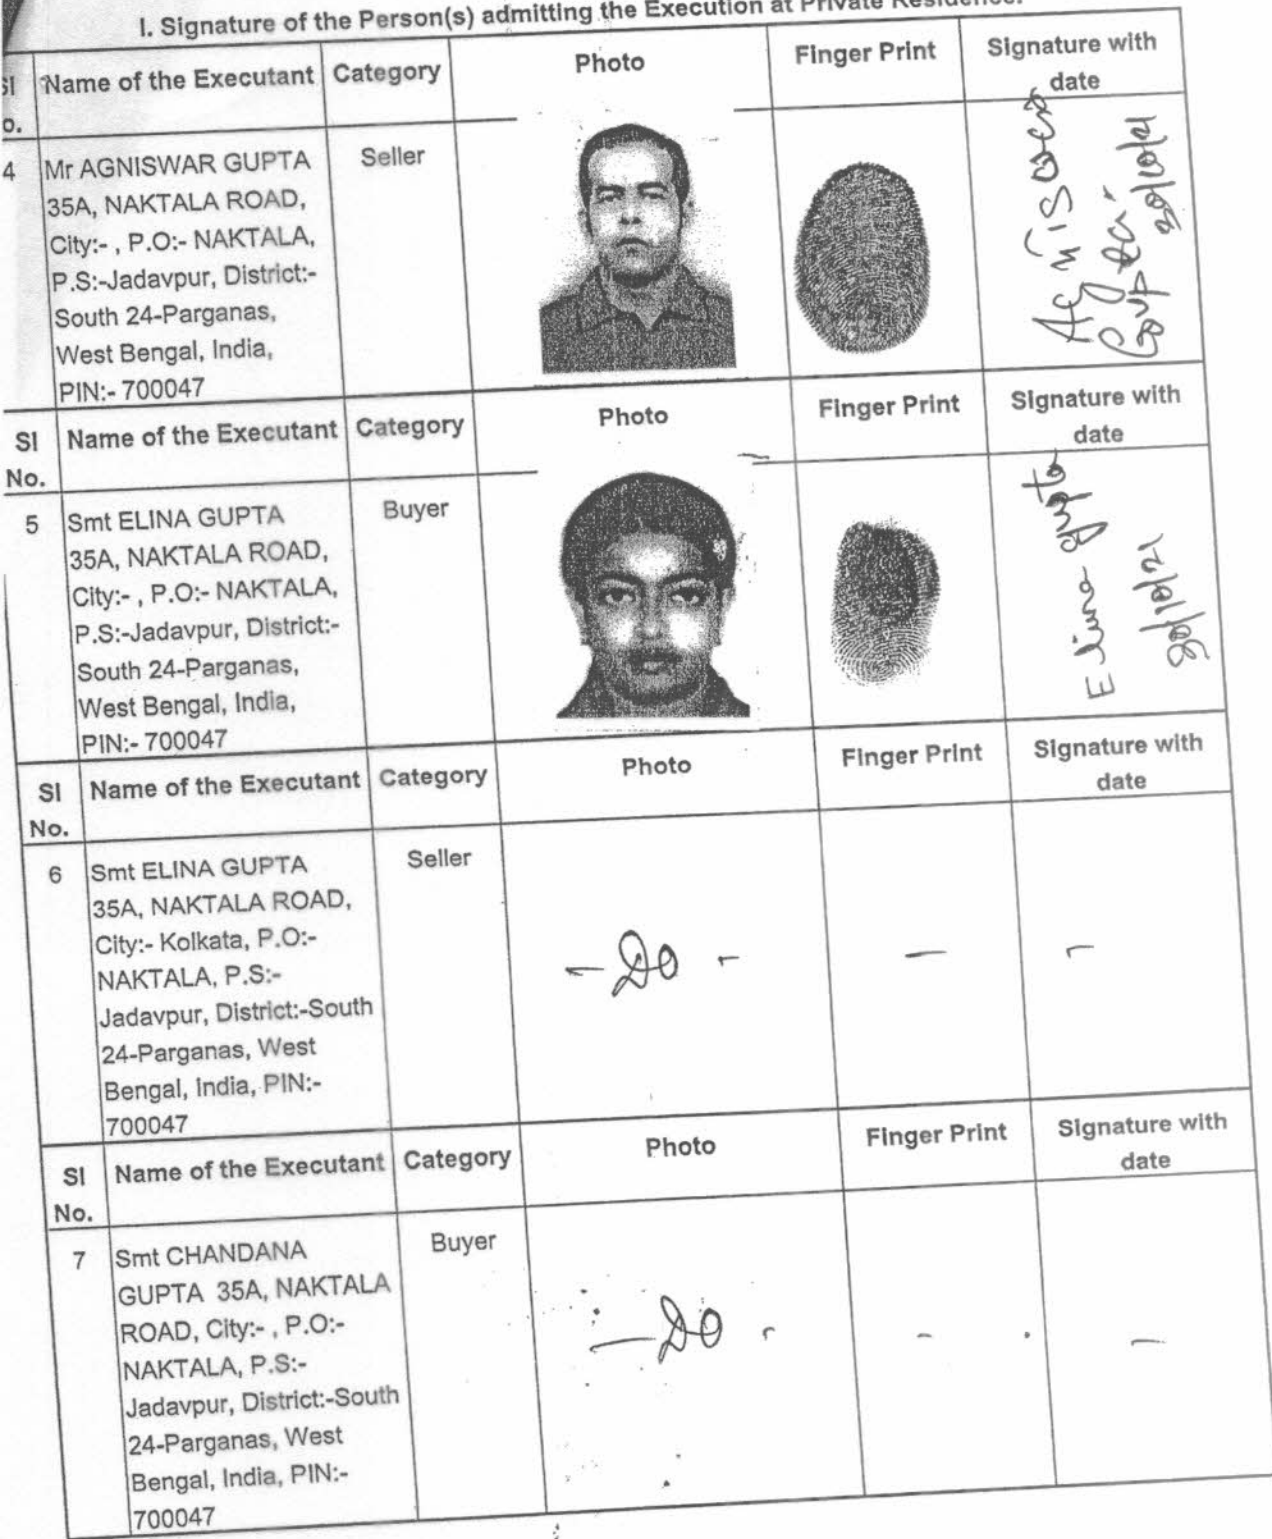 I. Signature of the Person(s) admitting the Execution at Private Residence.
Sl
o.
Name of the Executant
Category
Photo
Finger Print
Signature with
date
4
Mr AGNISWAR GUPTA
35A, NAKTALA ROAD,
City:- , P.O:- NAKTALA,
P.S:-Jadavpur, District:-
South 24-Parganas,
West Bengal, India,
PIN:- 700047
Seller
Agniswar
Gupta
20/10/21
Sl
No.
Name of the Executant
Category
Photo
Finger Print
Signature with
date
5
Smt ELINA GUPTA
35A, NAKTALA ROAD,
City:- , P.O:- NAKTALA,
P.S:-Jadavpur, District:-
South 24-Parganas,
West Bengal, India,
PIN:- 700047
Buyer
Elina Gupta
20/10/21
Sl
No.
Name of the Executant
Category
Photo
Finger Print
Signature with
date
6
Smt ELINA GUPTA
35A, NAKTALA ROAD,
City:- Kolkata, P.O:-
NAKTALA, P.S:-
Jadavpur, District:-South
24-Parganas, West
Bengal, India, PIN:-
700047
Seller
- Do -
-
-
Sl
No.
Name of the Executant
Category
Photo
Finger Print
Signature with
date
7
Smt CHANDANA
GUPTA 35A, NAKTALA
ROAD, City:- , P.O:-
NAKTALA, P.S:-
Jadavpur, District:-South
24-Parganas, West
Bengal, India, PIN:-
700047
Buyer
- Do -
-
-